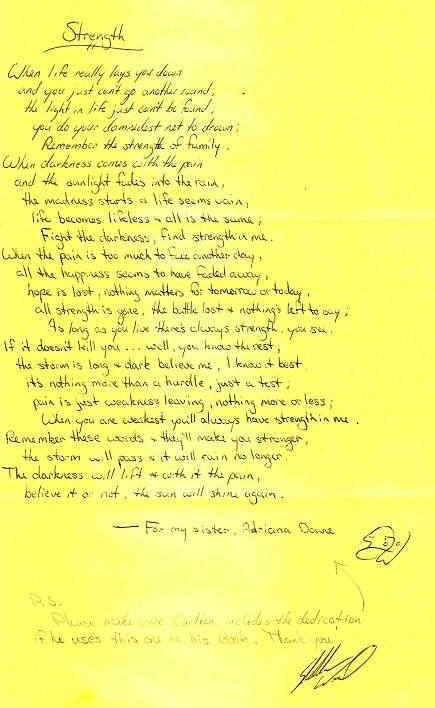 Strength
When life really lays you down
and you just can't go another round,
the light in life just can't be found,
you do your damnedest not to drown;
Remember the strength of family.
When darkness comes with the pain
and the sunlight fades into the rain,
the madness starts & life seems vain,
life becomes lifeless & all is the same;
Fight the darkness, find strength in me.
When the pain is too much to face another day,
all the happiness seems to have faded away,
hope is lost, nothing matters for tomorrow or today,
all strength is gone, the battle lost & nothing's left to say;
As long as you live there's always strength, you see.
If it doesn't kill you... well, you know the rest;
the storm is long & dark believe me, I know it best
it's nothing more than a hurdle, just a test;
pain is just weakness leaving, nothing more or less;
When you are weakest you'll always have strength in me.
Remember these words & they'll make you stronger,
the storm will pass & it will rain no longer.
The darkness will lift & with it the pain,
believe it or not, the sun will shine again.
— For my sister, Adriana
P.S.
Please make sure includes the dedication
if he uses this one in his book. Thank you